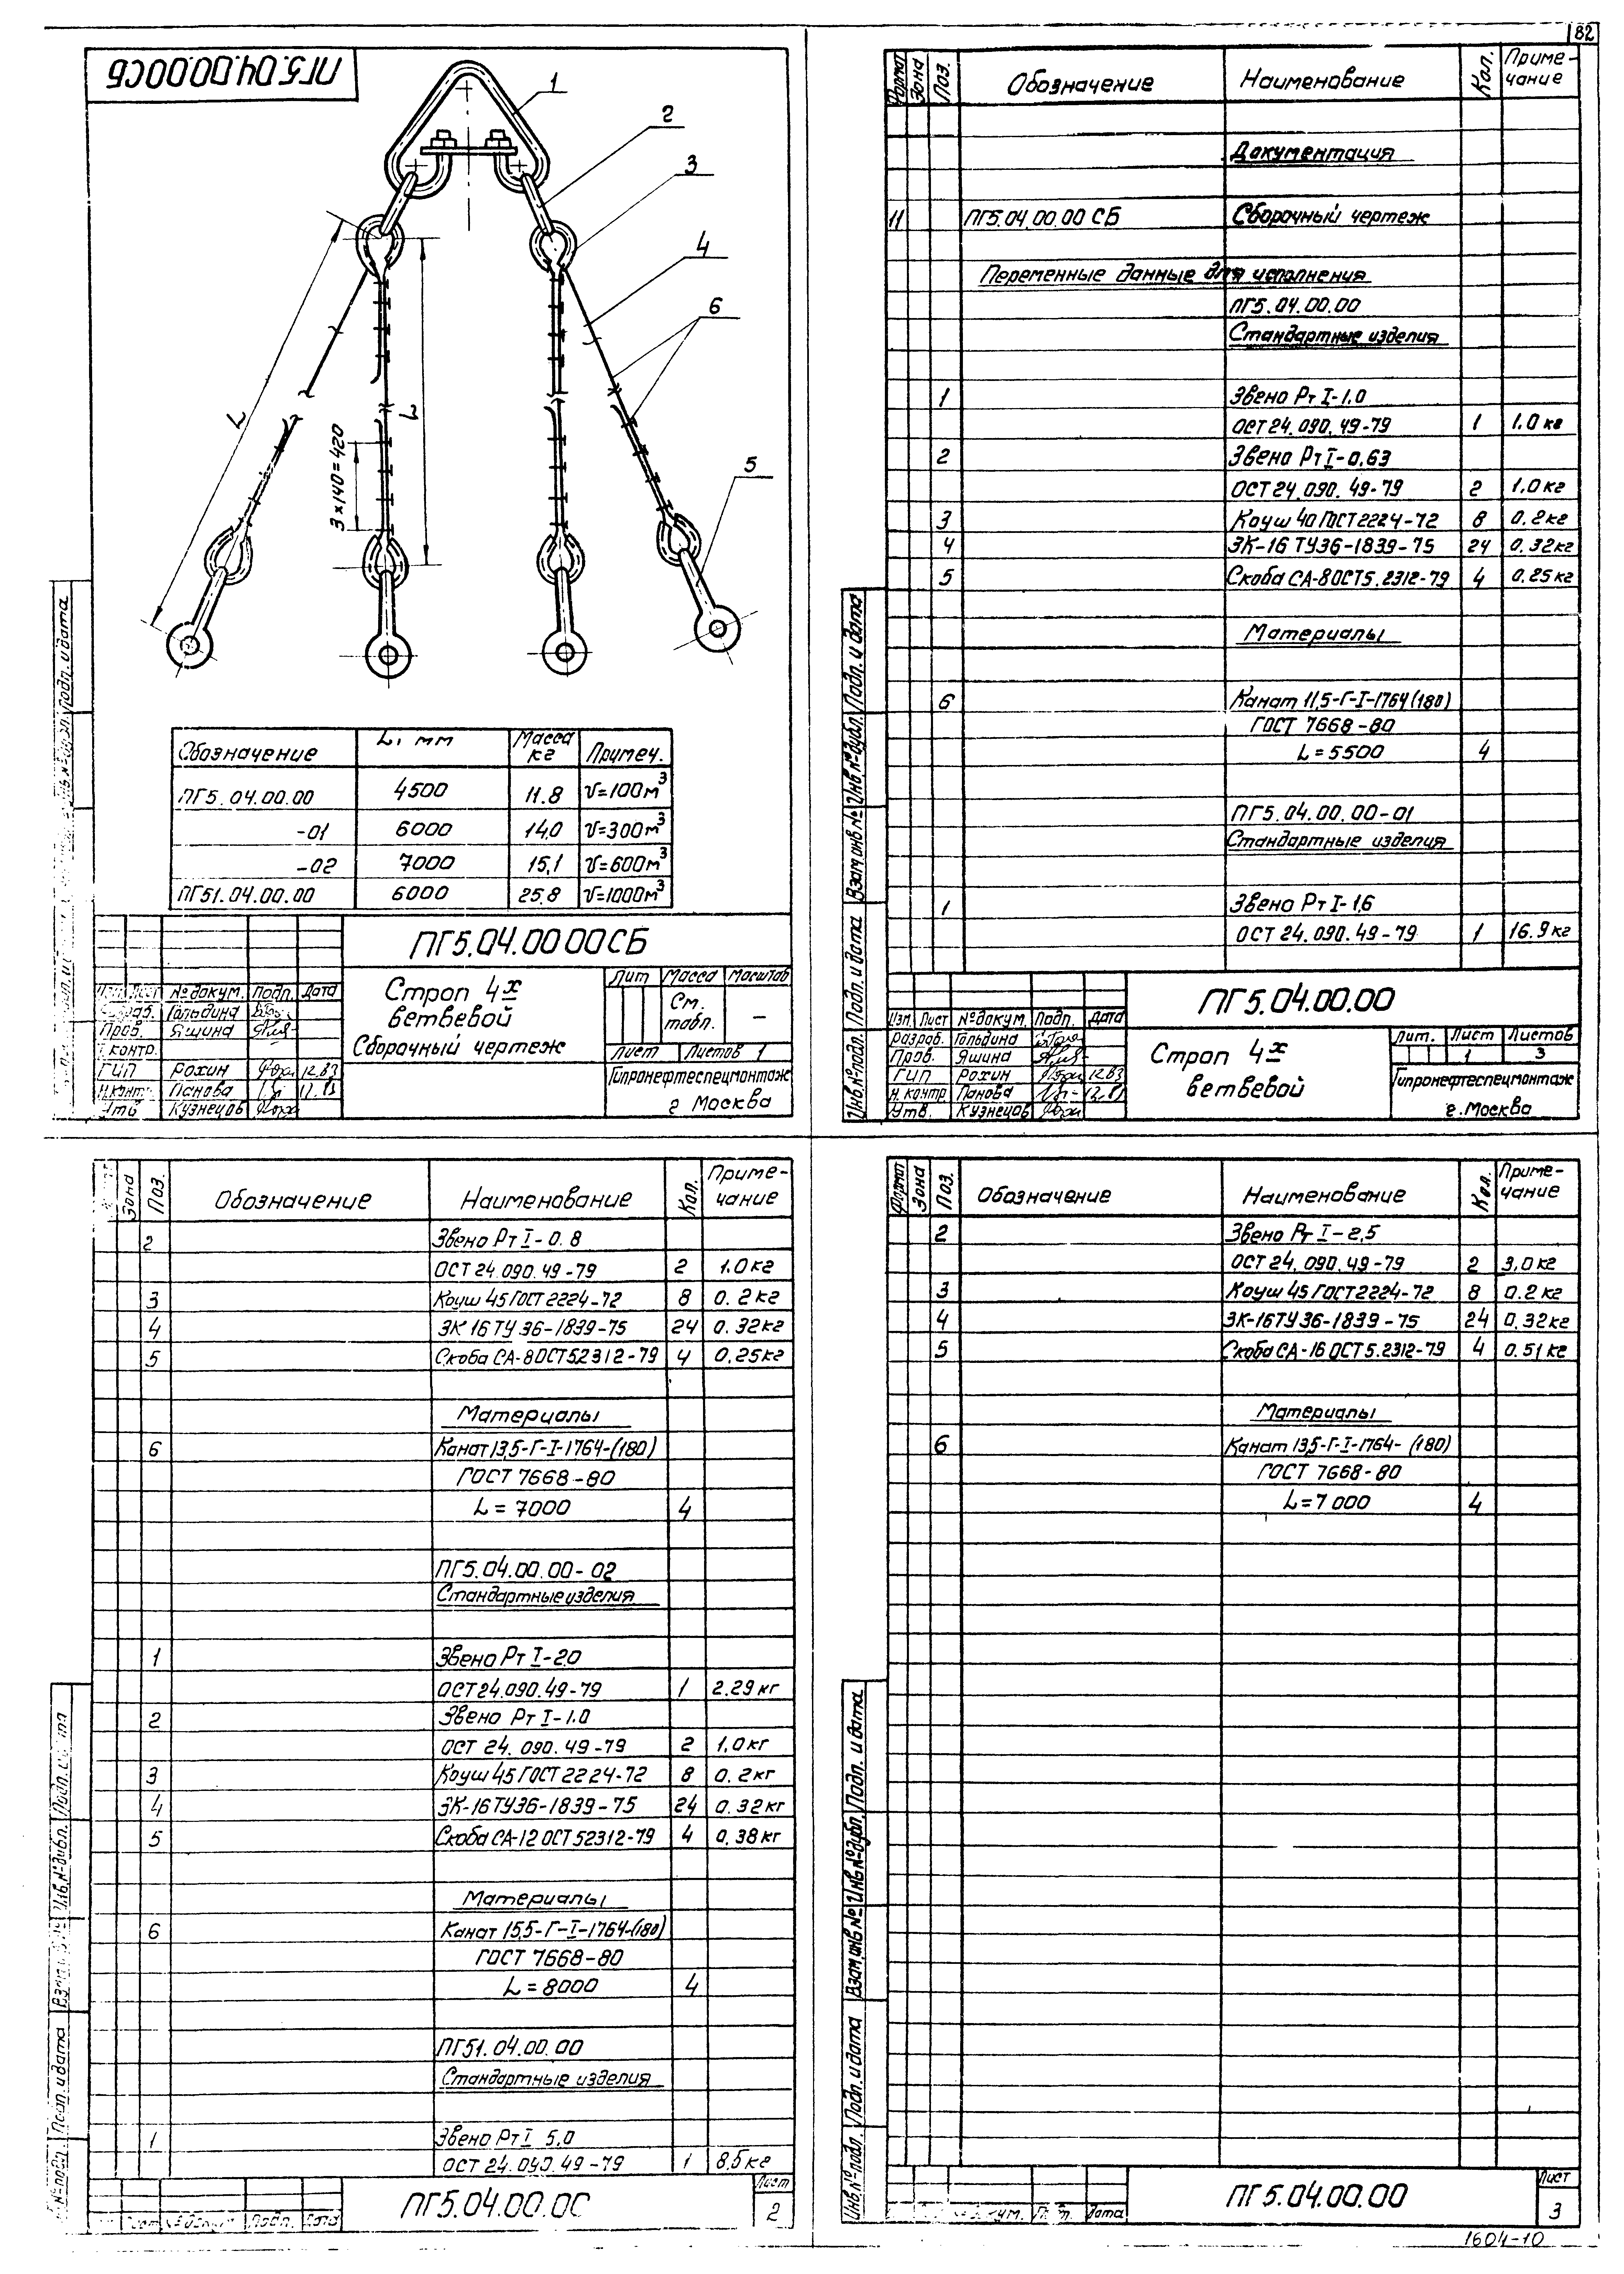 82
ПГ5.04.00.00СБ
1
2
3
4
6
5
L
L
3×140=420
Обозначение L, мм Масса кг Примеч.
ПГ5.04.00.00 4500 11.8 V=100м³
-01 6000 14,0 V=300м³
-02 7000 15,1 V=600м³
ПГ51.04.00.00 6000 25,8 V=1000м³
ПГ5.04.00 00СБ
Строп 4х
ветвевой
Сборочный чертеж
Лит Масса Масштаб
См. табл. —
Лист Листов 1
Гипронефтеспецмонтаж
г Москва
Лист № докум. Подп. Дата
Гольдина
Пров. Яшина
контр.
ГИП Рохин 12.83
Н.контр. Панова 12.83
Утв Кузнецов
Подп. и дата
Формат Зона Поз. Обозначение Наименование Кол. Примечание
Документация
11 ПГ5.04.00.00 СБ Сборочный чертеж
Переменные данные для исполнения
ПГ5.04.00.00
Стандартные изделия
1 Звено Рт I-1,0
ОСТ 24.090.49-79 1 1.0 кг
2 Звено Рт I-0,63
ОСТ 24.090.49-79 2 1,0 кг
3 Коуш 40 ГОСТ 2224-72 8 0.2 кг
4 ЗК-16 ТУ36-1839-75 24 0.32кг
5 Скоба СА-8 ОСТ5.2312-79 4 0.25 кг
Материалы
6 Канат 11,5-Г-I-1764(180)
ГОСТ 7668-80
L=5500 4
ПГ5.04.00.00-01
Стандартные изделия
1 Звено Рт I-1,6
ОСТ 24.090.49-79 1 16.9 кг
ПГ5.04.00.00
Изм. Лист № докум. Подп. Дата
Разраб. Гольдина
Пров. Яшина
ГИП Рохин 12.83
Н.контр Панова 12.83
Утв. Кузнецов
Строп 4х
ветвевой
Лит. Лист Листов
1 3
Гипронефтеспецмонтаж
г.Москва
Инв.№ подл. Подп. и дата Взам инв № Инв № дубл. Подп. и дата
Зона Поз. Обозначение Наименование Кол. Примечание
2 Звено Рт I-0.8
ОСТ 24.090.49-79 2 1.0 кг
3 Коуш 45 ГОСТ 2224-72 8 0.2 кг
4 ЗК 16 ТУ 36-1839-75 24 0.32кг
5 Скоба СА-8 ОСТ5.2312-79 4 0.25кг
Материалы
6 Канат 13,5-Г-I-1764-(180)
ГОСТ 7668-80
L=7000 4
ПГ5.04.00.00-02
Стандартные изделия
1 Звено Рт I-2,0
ОСТ 24.090.49-79 1 2.29 кг
2 Звено Рт I-1.0
ОСТ 24.090.49-79 2 1,0 кг
3 Коуш 45 ГОСТ 2224-72 8 0.2кг
4 ЗК-16 ТУ36-1839-75 24 0.32 кг
5 Скоба СА-12 ОСТ 52312-79 4 0,38 кг
Материалы
6 Канат 15,5-Г-I-1764-(180)
ГОСТ 7668-80
L=8000 4
ПГ51.04.00.00
Стандартные изделия
1 Звено Рт I 5,0
ОСТ 24.090.49-79 1 8.5 кг
ПГ5.04.00.00
Лист
2
Подп. Дата
Формат Зона Поз. Обозначение Наименование Кол. Примечание
2 Звено Рт I-2,5
ОСТ 24.090.49-79 2 3,0 кг
3 Коуш 45 ГОСТ 2224-72 8 0.2 кг
4 ЗК-16 ТУ 36-1839-75 24 0,32кг
5 Скоба СА-16 ОСТ 5.2312-79 4 0.51 кг
Материалы
6 Канат 13,5-Г-I-1764-(180)
ГОСТ 7668-80
L=7000 4
ПГ5.04.00.00
Лист
3
Дата
Инв.№ подл. Подп. и дата Взам.инв № Инв № дубл. Подп. и дата
1604-10